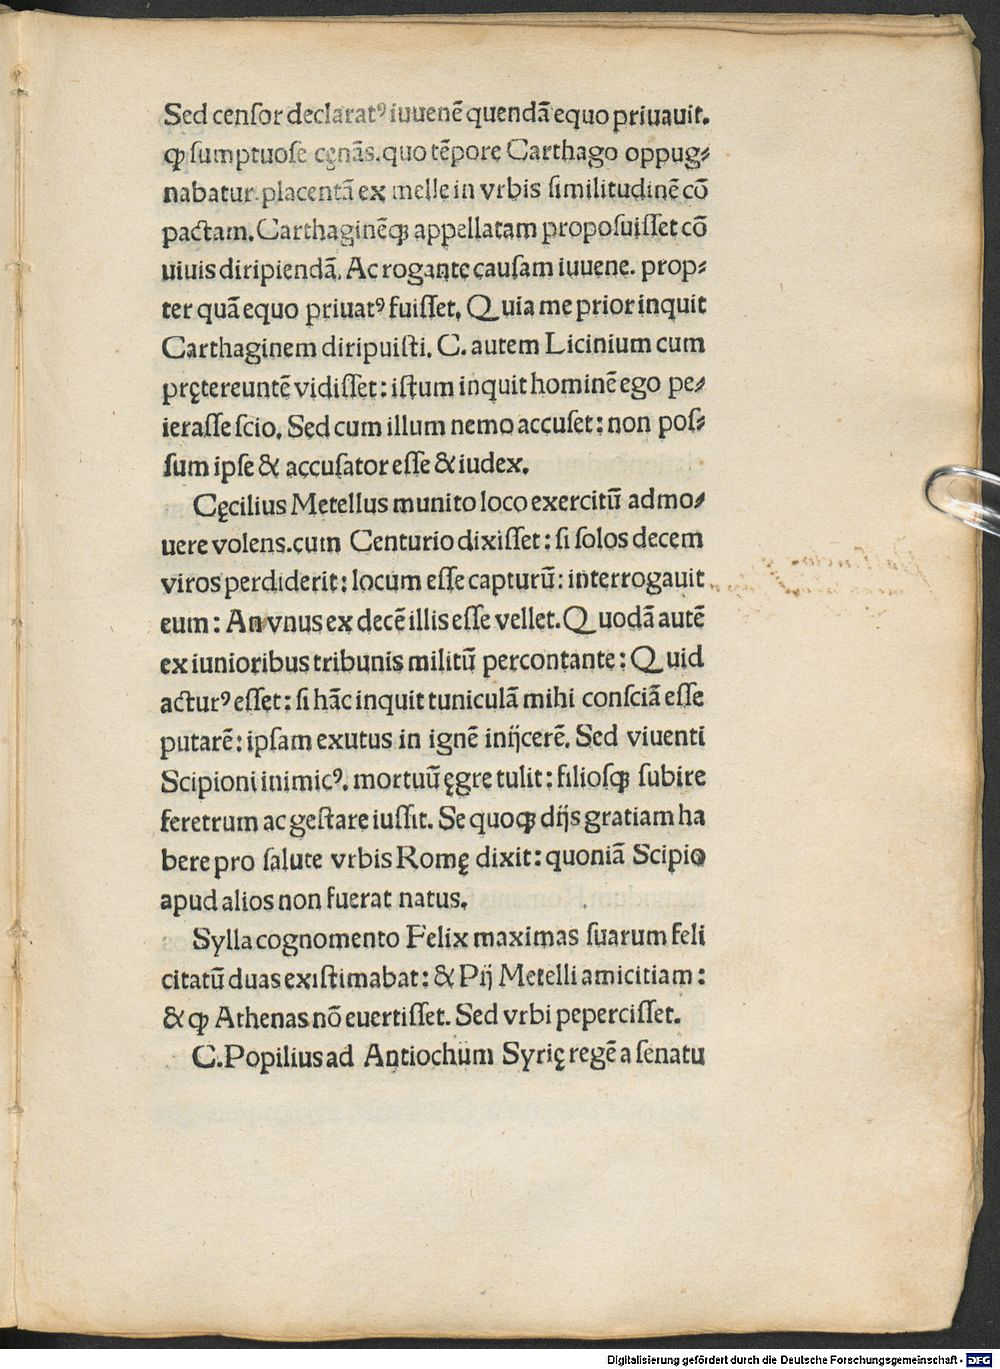 Sed cenſor declaratꝰ iuuenē quendā equo priuauit.
ꝙ ſumptuoſe cęnās. quo tēpore Carthago oppug⸗
nabatur. placentā ex melle in vrbis ſimilitudinē cō
pactam. Carthaginēqꝫ appellatam propoſuiſſet cō
uiuis diripiendā. Ac rogante cauſam iuuene. prop⸗
ter quā equo priuatꝰ fuiſſet. Quia me prior inquit
Carthaginem diripuiſti. C. autem Licinium cum
prętereuntē vidiſſet: iſtum inquit hominē ego pe⸗
ieraſſe ſcio. Sed cum illum nemo accuſet: non poſ⸗
ſum ipſe & accuſator eſſe & iudex.
Cęcilius Metellus munito loco exercitū admo⸗
uere volens. cum Centurio dixiſſet: ſi ſolos decem
viros perdiderit: locum eſſe capturū: interrogauit
eum: An vnus ex decē illis eſſe vellet. Quodā autē
ex iunioribus tribunis militū percontante: Quid
acturꝰ eſſet: ſi hāc inquit tuniculā mihi conſciā eſſe
putarē: ipſam exutus in ignē inijcerē. Sed viuenti
Scipioni inimicꝰ. mortuū ęgre tulit: filioſqꝫ ſubire
feretrum ac geſtare iuſſit. Se quoqꝫ dijs gratiam ha
bere pro ſalute vrbis Romę dixit: quoniā Scipio
apud alios non fuerat natus.
Sylla cognomento Felix maximas ſuarum feli
citatū duas exiſtimabat: & Pij Metelli amicitiam:
& ꝙ Athenas nō euertiſſet. Sed vrbi peperciſſet.
C. Popilius ad Antiochum Syrię regē a ſenatu
Digitalisierung gefördert durch die Deutsche Forschungsgemeinschaft - DFG